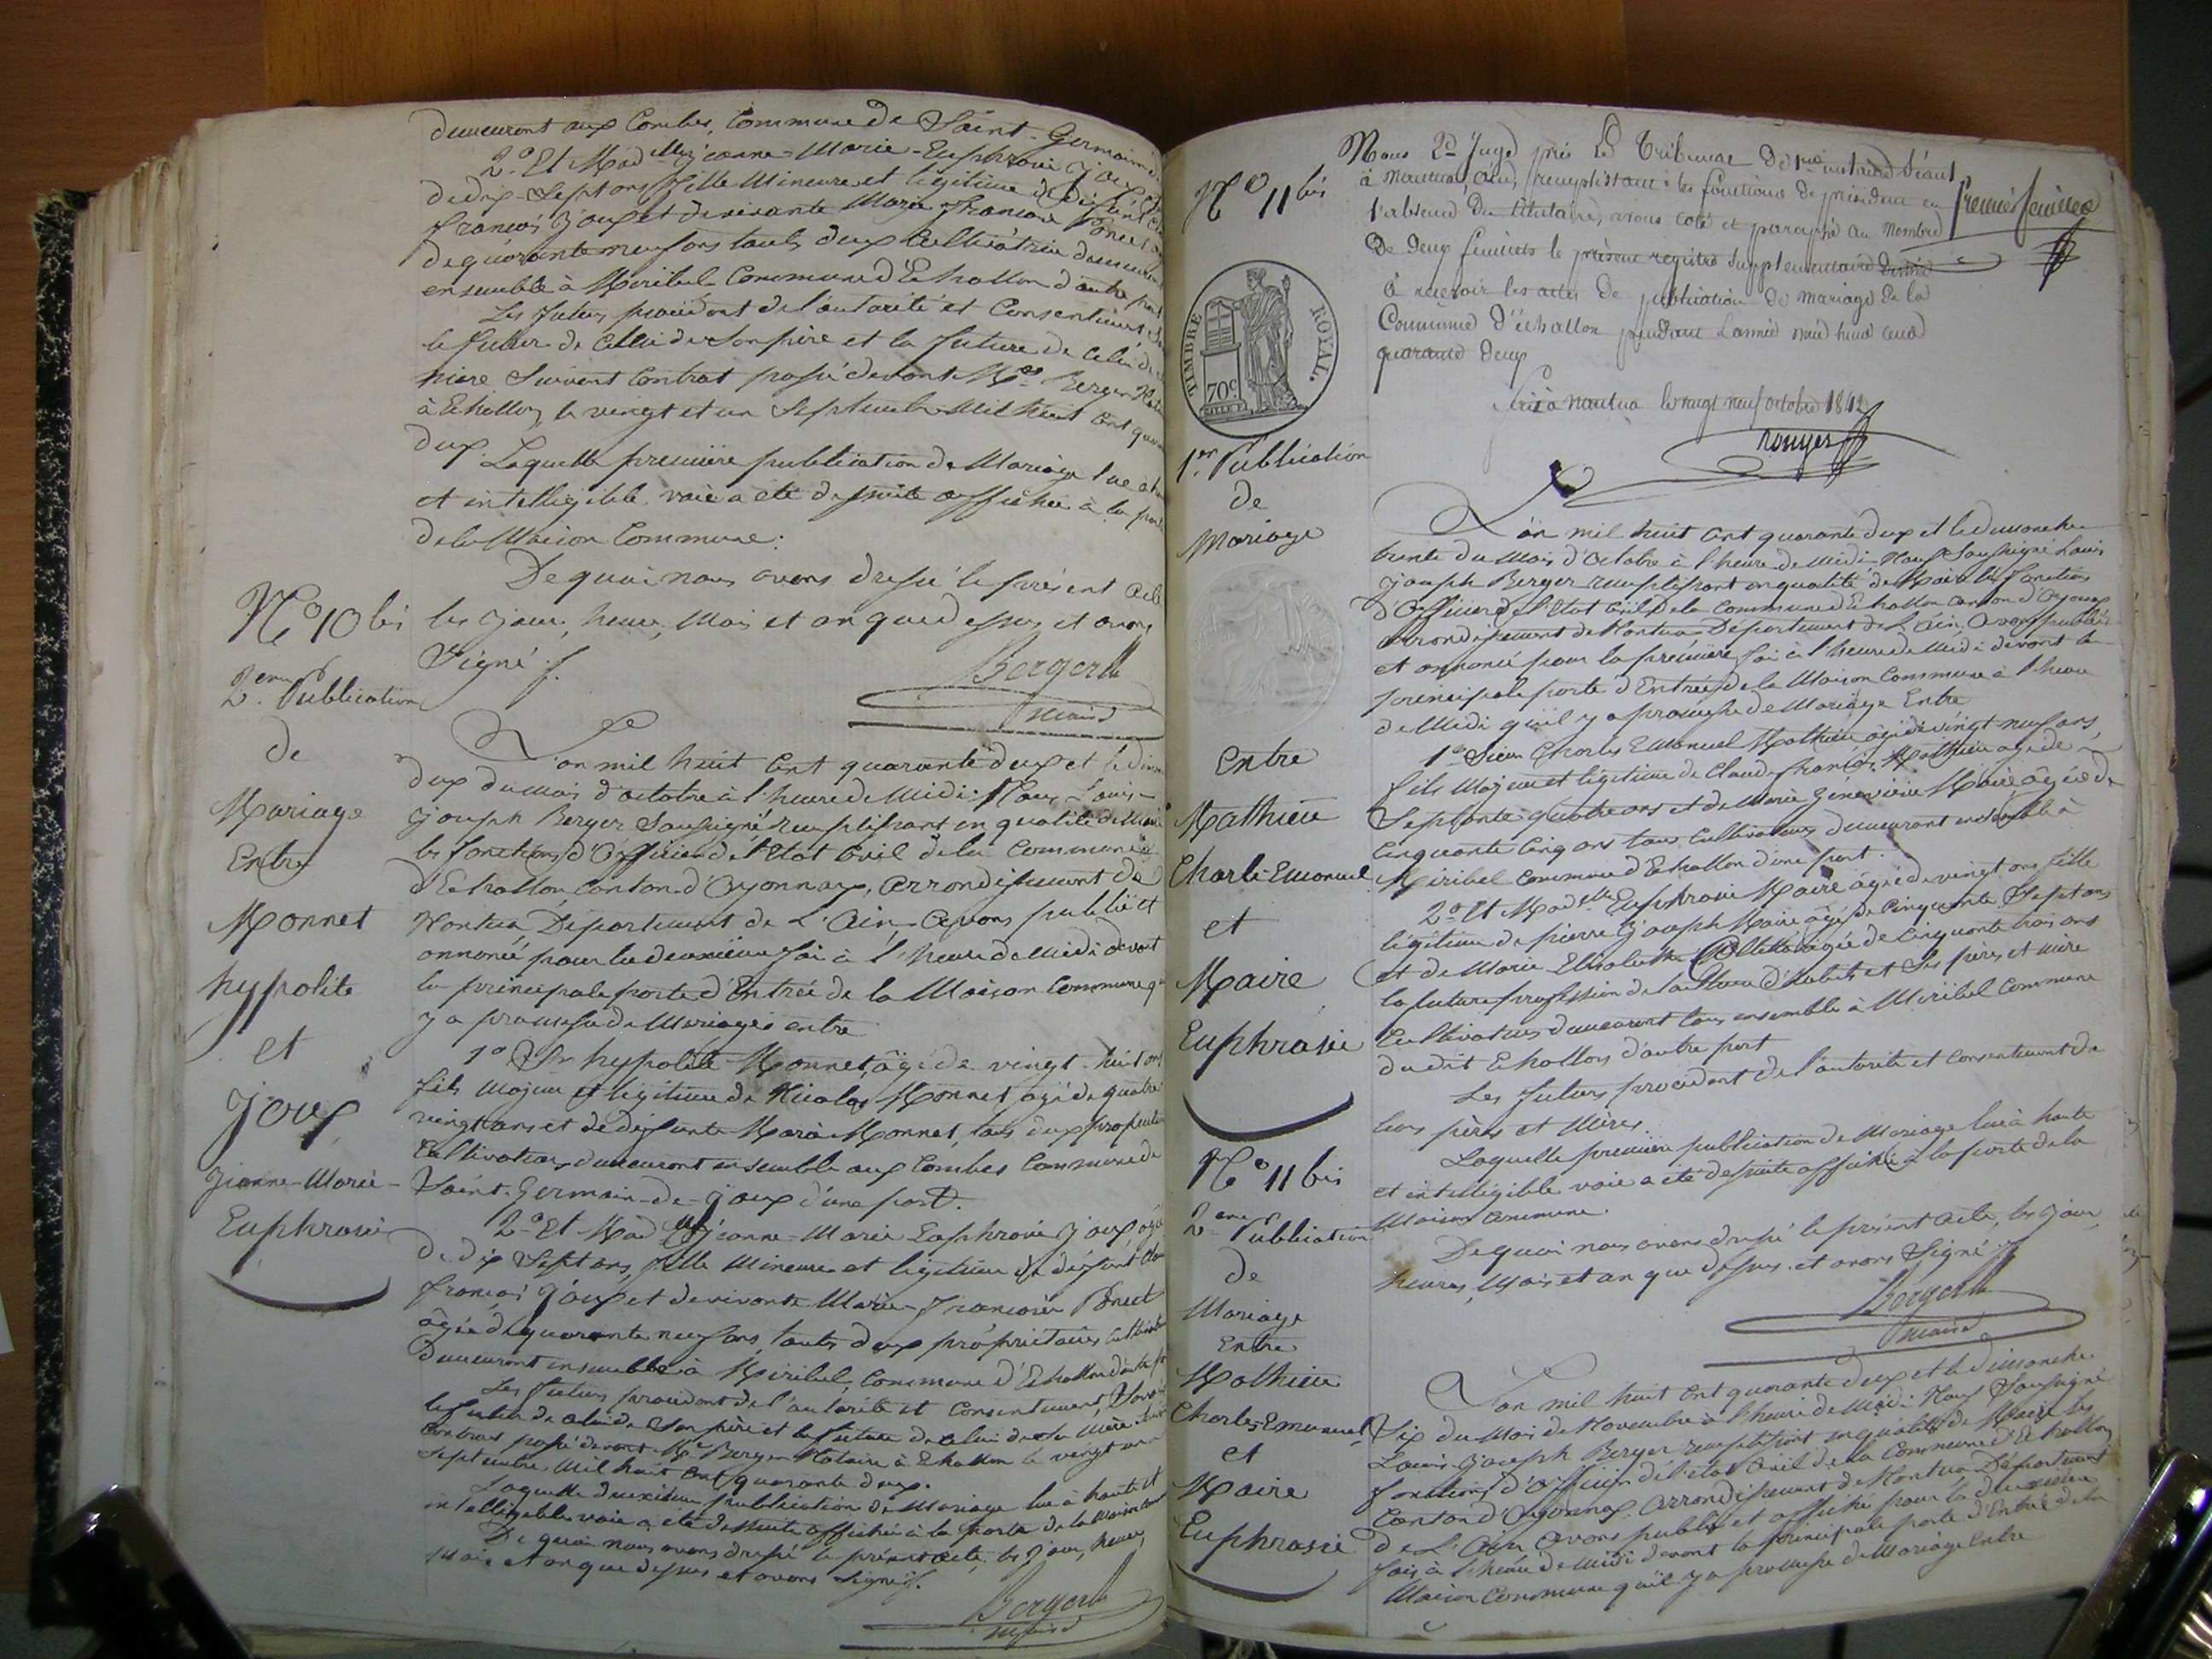 demeurant aux Combes, Commune de Saint-Germain
2.° Et Mad.lle Jeanne-Marie-Euphrasie Joux
de dix-sept ans, fille Mineure et légitime de défunt
françois Joux et de vivante Marie françoise Poncet
de quarante neuf ans touts deux Cultivatrice demeurant
ensemble à Miribel Commune d'Echallon d'autre part
Les futurs procèdent de l'autorité et Consentement
le futur de Celui de Son père et la future de Celui de
mère Suivant Contrat passé devant M.e Berger
à Echallon, le vingt et un Septembre Mil huit Cent
deux
Laquelle première publication de Mariage lue à
et intelligible voie a été de suite affichée à la porte
de la Maison Commune.
De quoi nous avons dressé le présent acte
N.° 10 bis
les Jour, heure, Mois et an que dessus et avons
Signé ./.
Berger
maire
2.eme Publication
de
Mariage
Entre
Monnet
hyppolite
et
Joux
Jeanne-Marie-
Euphrasie
L'an mil huit Cent quarante deux et le
deux du mois d'octobre à l'heure de Midi: Nous Louis-
Joseph Berger Soussigné remplissant en qualité de Maire
les fonctions d'Officier de l'Etat Civil de la Commune
d'Echallon, Canton d'Oyonnax, arrondissement de
Nantua, Département de L'Ain - avons publié et
annoncé pour la deuxième fois à l'heure de Midi devant
la principale porte d'Entrée de la Maison Commune
y a promesse de Mariage entre
1.° Sr. hyppolite Monnet, âgé de vingt-huit ans
fils Majeur et légitime de Nicolas Monnet âgé de quatre
vingt ans et de défunte Marie Monnet, touts deux
Cultivateurs demeurant ensemble aux Combes Commune de
Saint-Germain-de-Joux d'une part.
2.° Et Mad.lle Jeanne-Marie Euphrasie Joux, âgée
de dix Sept ans, fille Mineure et légitime de défunt
françois Joux et de vivante Marie-françoise Poncet
âgée de quarante neuf ans, touts deux propriétaires
demeurant ensemble à Miribel, Commune d'Echallon d'autre
Les futurs procèdent de l'autorité et Consentement, Savoir
le futur de Celui de Son père et la future de Celui de Sa Mère
Contrat passé devant M.e Berger Notaire à Echallon le vingt un
Septembre Mil huit Cent quarante deux.
Laquelle deuxième publication de Mariage lue à haute et
intelligible voie a été de suite affichée à la porte de la Maison
De quoi nous avons dressé le présent acte, les Jour, heure,
Mois et an que dessus et avons Signé ./.
Berger
maire
N.° 11 bis
Nous 2.d Juge près Le Tribunal De 1.re instance Séant
à Nantua, ain, remplissant les fonctions de président en
l'absence Du titulaire, avons coté et paraphé au Nombre
De Deux feuillets le présent registre Supplémentaire Destiné
à recevoir les actes De publication De mariage De la
Commune D'échallon pendant L'année mil huit cent
quarante Deux
premier feuillet
fait à Nantua le vingt neuf octobre 1842
rouyer
TIMBRE
ROYAL.
70c
1.er Publication
de
Mariage
entre
Mathieu
Charle-Emanuel
et
Maire
Euphrasie
L'an mil huit Cent quarante deux et le dimanche
trente du Mois d'Octobre à l'heure de Midi - Nous Soussigné Louis
Joseph Berger remplissant en qualité de Maire les fonctions
d'Officier de l'Etat Civil de la Commune d'Echallon Canton d'Oyonnax
arrondissement de Nantua Département de L'Ain, Avons publié
et annoncé pour la première fois à l'heure de Midi devant la
principale porte d'Entrée de la Maison Commune à l'heure
de Midi qu'il y a promesse de Mariage Entre
1.° Sieur Charles Emanuel Mathieu âgé de vingt-neuf ans,
fils Majeur et légitime de Claude françois Mathieu âgé de
Septante quatre ans et de Marie Geneviève Maire âgée de
Cinquante Cinq ans tous Cultivateurs demeurant ensemble à
Miribel Commune d'Echallon d'une part.
2.° Et Mad.lle Euphrasie Maire âgée de vingt ans fille
légitime de pierre Joseph Maire âgé de Cinquante Sept ans
et de Marie Elisabeth âgée de Cinquante trois ans
la future profession de d'habits et Ses pères et mère
Cultivateurs demeurant tous ensemble à Miribel Commune
du dit Echallon d'autre part
Les futurs procèdent de l'autorité et Consentement de
leurs pères et Mères.
Laquelle première publication de Mariage lue à haute
et intelligible voie a été de suite affichée à la porte de la
Maison Commune.
De quoi nous avons dressé le présent acte, les Jour,
heures, Mois et an que dessus et avons Signé ./.
Berger
maire
N.° 11 bis
2.eme Publication
de
Mariage
Entre
Mathieu
Charles-Emanuel
et
Maire
Euphrasie
L'an mil huit Cent quarante deux et le dimanche
Six du Mois de Novembre à l'heure de Midi: Nous Soussigné
Louis-Joseph Berger remplissant en qualité de Maire les
fonctions d'Officier de l'état Civil de la Commune d'Echallon
Canton d'Oyonnax, arrondissement de Nantua Département
de L'Ain avons publié et affiché pour la deuxième
fois à l'heure de Midi devant la principale porte d'Entrée de la
Maison Commune qu'il y a promesse de Mariage Entre